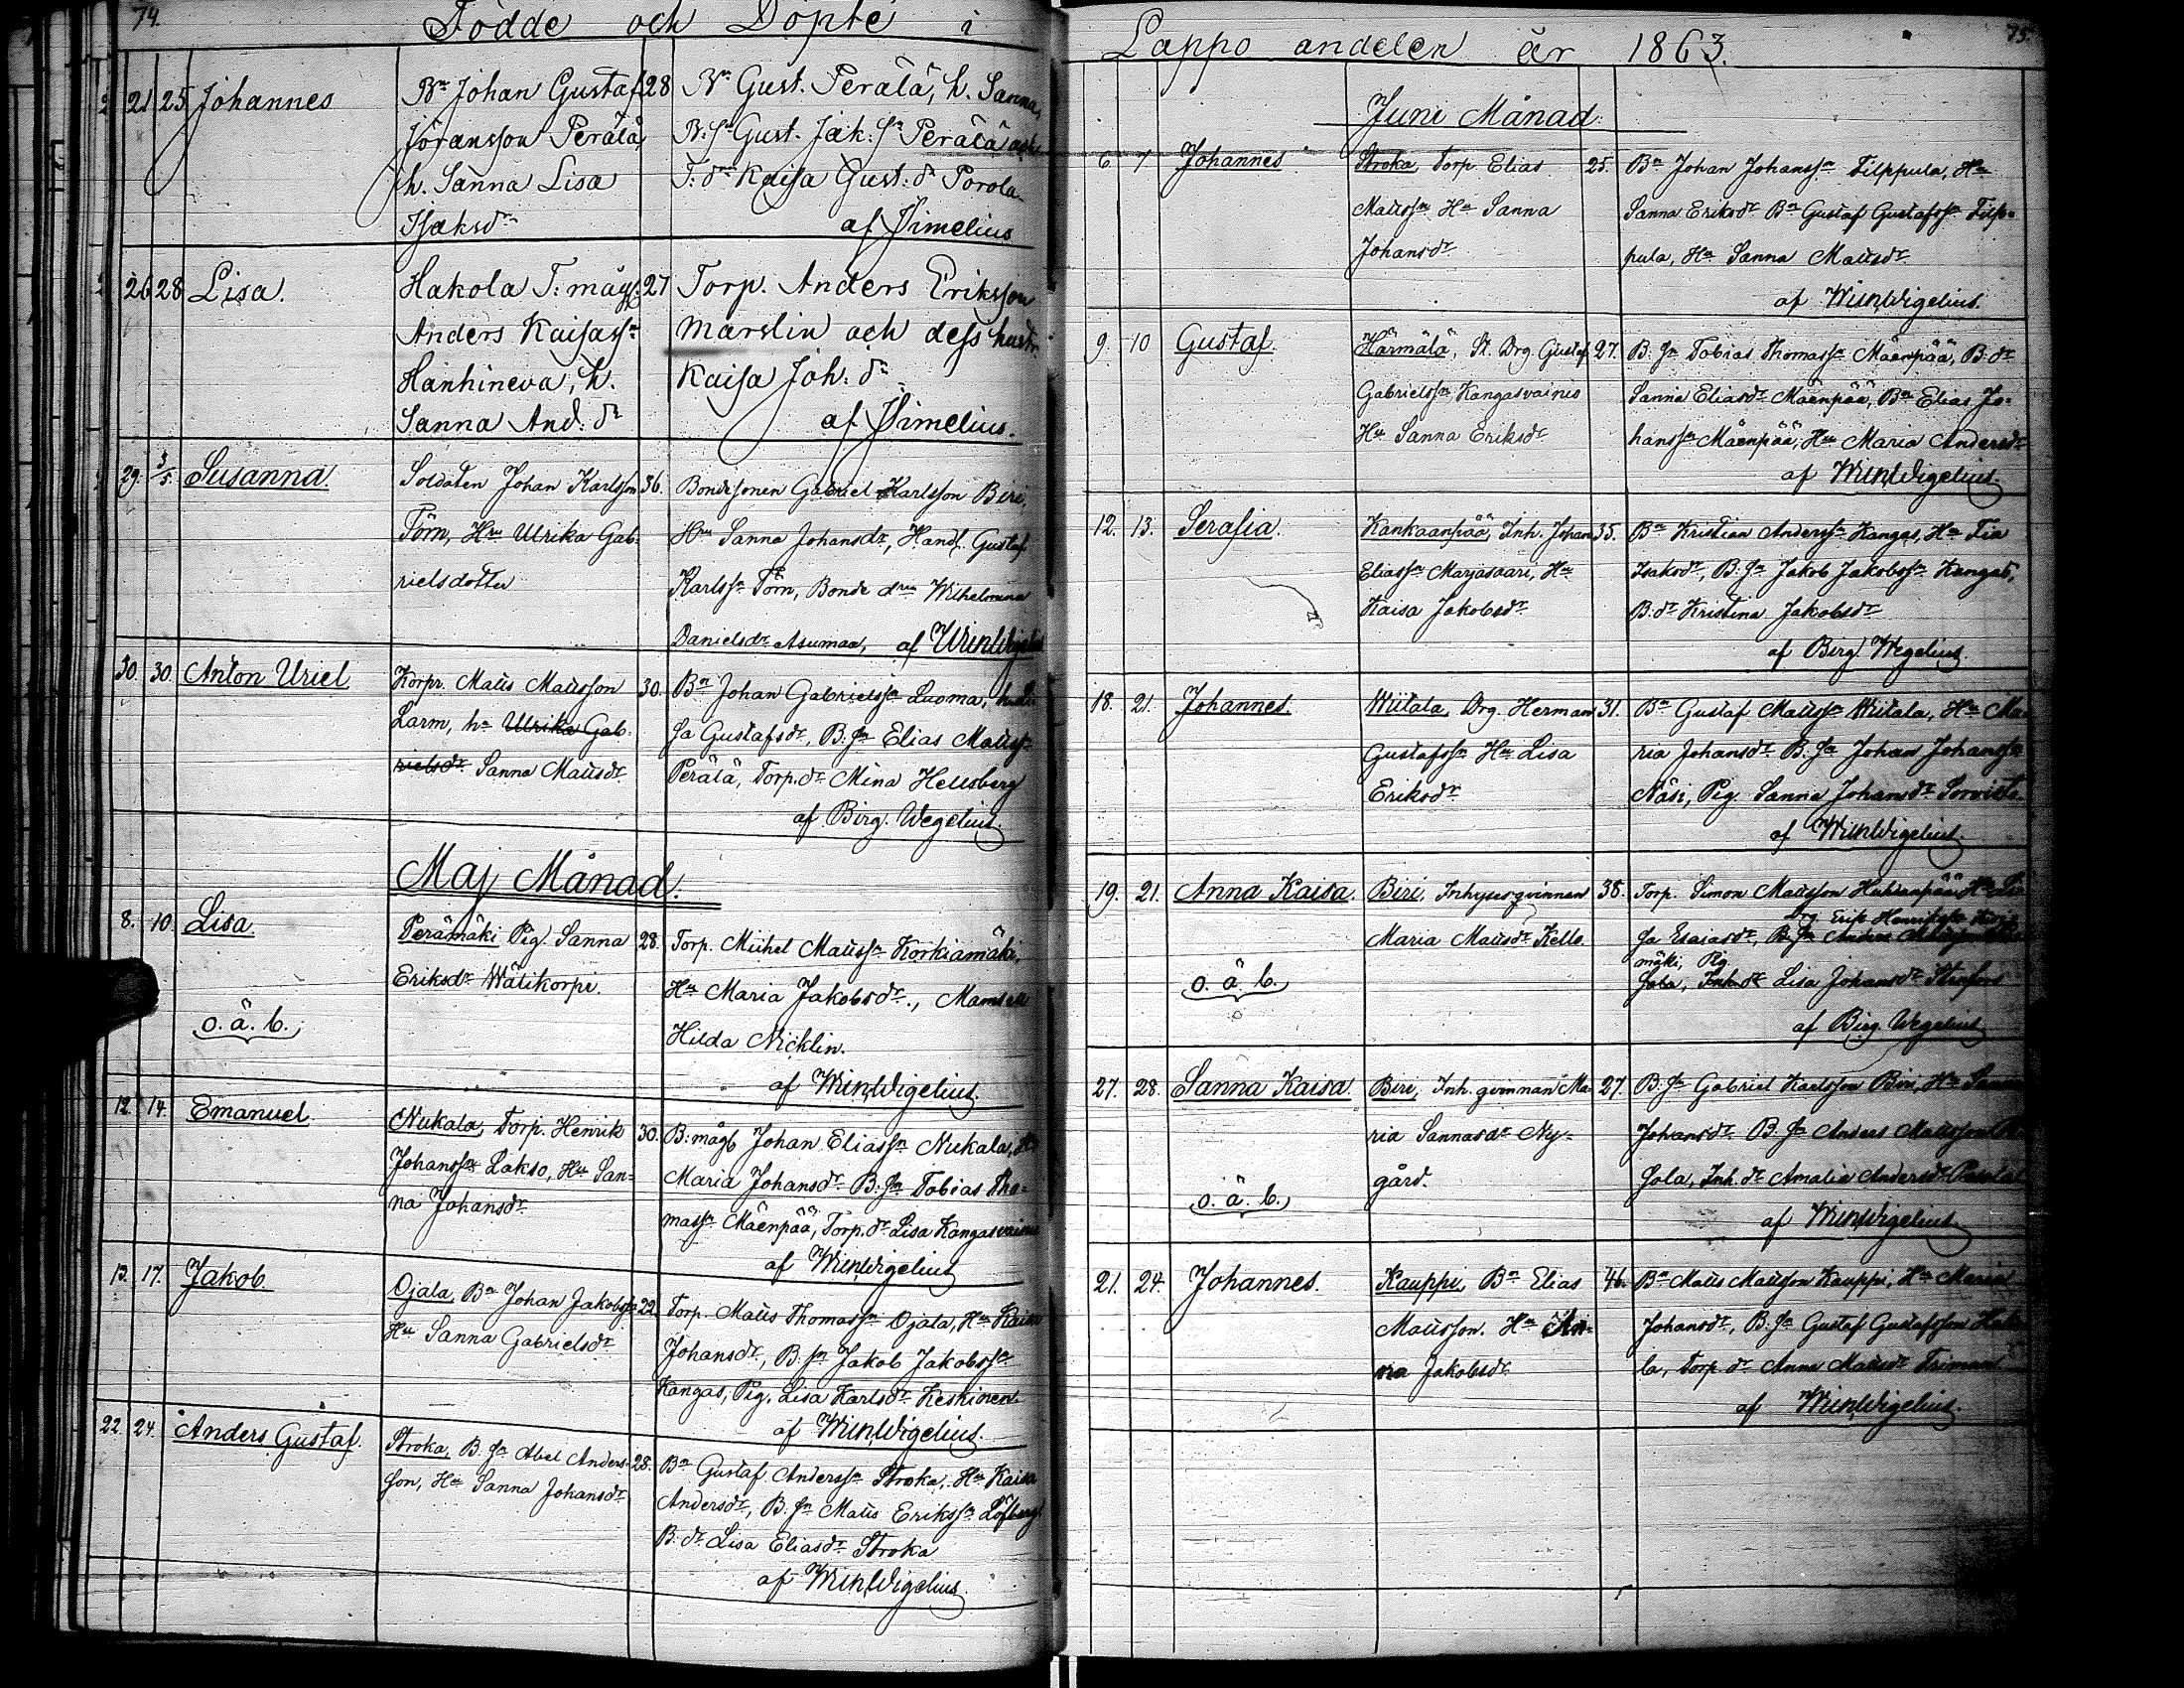 74.
Födde och Döpte i
21 25 Johannes Bn Johan Gustaf 28 Bn Gust. Perälä, h. Sanna,
Jöransson Perälä, B:sn Gust. Jak:sn Perälä och
h. Sanna Lisa T:dr Kaisa Gust:dr Porola
Isaksdr af Simelius
26 28 Lisa. Hakola T:måg 27 Torp. Anders Eriksson
Anders Kaisass:n Marslin och dess hustr.
Hanhineva, h. Kaisa Joh:dr
Sanna And:dr af Simelius.
29. 3/5 Susanna. Soldaten Johan Karlsson 36. Bondesonen Gabriel Karlsson Biri,
Törn, Hru Ulrika Gab- Hru Sanna Johansdr, Handl. Gustaf
rielsdotter Karlssn Törn, Bonde drn Wilhelmina
Danielsdr Asumaa, af
30. 30. Anton Uriel Korpr. Matts Mattsson 30. Bn Johan Gabrielssn Luoma,
Larm, hn Ulrika Gab- sa Gustafsdr, B:sn Elias Mattssn
rielsdr Sanna Mattsdr. Perälä, Torp.dr Mina Hellsberg
af Birg. Wegelius.
Maj Månad.
8. 10. Lisa. Perämäki Pig. Sanna 28. Torp. Michel Mattssn Korkiamäki,
Eriksdr Wälikorpi. Hu Maria Jakobsdr., Mamsell
o. ä. b. Hilda Nicklin.
af Wegelius.
12. 14. Emanuel Nukala, Torp. Henrik 30. B:måg Johan Eliassn Nukala,
Johanssn Lakso, Hu San- Maria Johansdr B:sn Tobias Tho-
na Johansdr massn Mäenpää, Torp.dr Lisa Kangasvainio
af Wegelius
13. 17. Jakob. Ojala, Bn Johan Jakobssn 22. Torp. Matts Thomassn Ojala, Hu Kaisa
Hu Sanna Gabrielsdr Johansdr, B:sn Jakob Jakobssn
Kangas, Pig. Lisa Karlsdr Keskinen.
af Wegelius.
22. 24. Anders Gustaf. Stroka, B:sn Abel Anders- 28. Bn Gustaf Anderssn Stroka, Hu Kaisa
son, Hu Sanna Johansdr Andersdr, B:sn Matts Erikssn Löfberg
B:dr Lisa Eliasdr Stroka
af Wegelius.
75.
Lappo andelen år 1863.
Juni Månad.
6. 7 Johannes Stroka, Torp. Elias 25. Bn Johan Johanssn Filppula, Hu
Mattssn Hu Sanna Sanna Eriksdr Bn Gustaf Gustafssn Filp-
Johansdr. pula, Hu Sanna Mattsdr.
af Wegelius.
9. 10 Gustaf. Härmälä, St. Drg Gustaf 27. B:sn Tobias Thomassn Mäenpää, B:dr
Gabrielssn Kangasvainio Sanna Eliasdr Mäenpää, Bn Elias Jo-
Hu Sanna Eriksdr hanssn Mäenpää, Hu Maria Andersdr
af Wegelius.
12. 13. Serafia. Kankaanpää, Inh. Johan 35. Bn Kristian Anderssn Kangas, Hu Fia
Eliassn Marjasaari, Hu Isaksdr, B:sn Jakob Jakobssn Kangas,
Kaisa Jakobsdr B:dr Kristina Jakobsdr
af Birg. Wegelius.
18. 21. Johannes. Wiitala, Drg. Herman 31. Bn Gustaf Mattssn Wiitala, Hu Ma-
Gustafssn Hu Lisa ria Johansdr B:sn Johan Johanssn
Eriksdr Näsi, Pig. Sanna Johansdr
af Wegelius.
19. 21. Anna Kaisa. Biri, Inhysesqvinnan 38. Torp. Simon Mattsson Huhtanpää Hu Li-
Drg. Erik Henrikssn
Maria Mattsdr Kello. sa Esaiasdr, B:sn
mäki, Pig
o. ä. b. Inh.dr Lisa Johansdr
af Birg. Wegelius
27. 28. Sanna Kaisa. Biri, Inh. qvinnan Ma- 27. B:sn Gabriel Karlsson Biri, Hu Sanna
ria Sannasdr Ny- Johansdr B:sn Anders Mattsson
o. ä. b. gård. Inh.dr Amalia Andersdr
af Wegelius.
21. 24. Johannes. Kauppi, Bn Elias 46. Bn Matts Mattsson Kauppi, Hu Maria
Mattsson. Hu An- Johansdr, B:sn Gustaf Gustafsson Hako-
na Jakobsdr. la, Torp.dr Anna Mattsdr
af Wegelius.